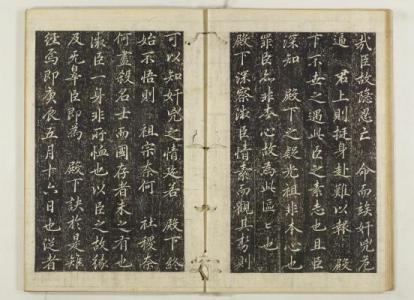 哉臣故隱忍亡命而竢奸兇危
逼 君上則挺身赴難以報 殿
下不世之遇此臣之素志也且臣
深知 殿下之疑光祖非本心也
罪臣亦非本心故為此區々也
殿下深察淑臣情素而觀其事則
可以知奸兇之情迹若 殿下終
始不悟則 祖宗奈何 社稷奈
何盡殺名士而國存者未之有也
淑臣一身非所恤也以臣之故緣
及无辜臣即為 殿下訣於是雉
經焉即庚辰五月十六日也從者